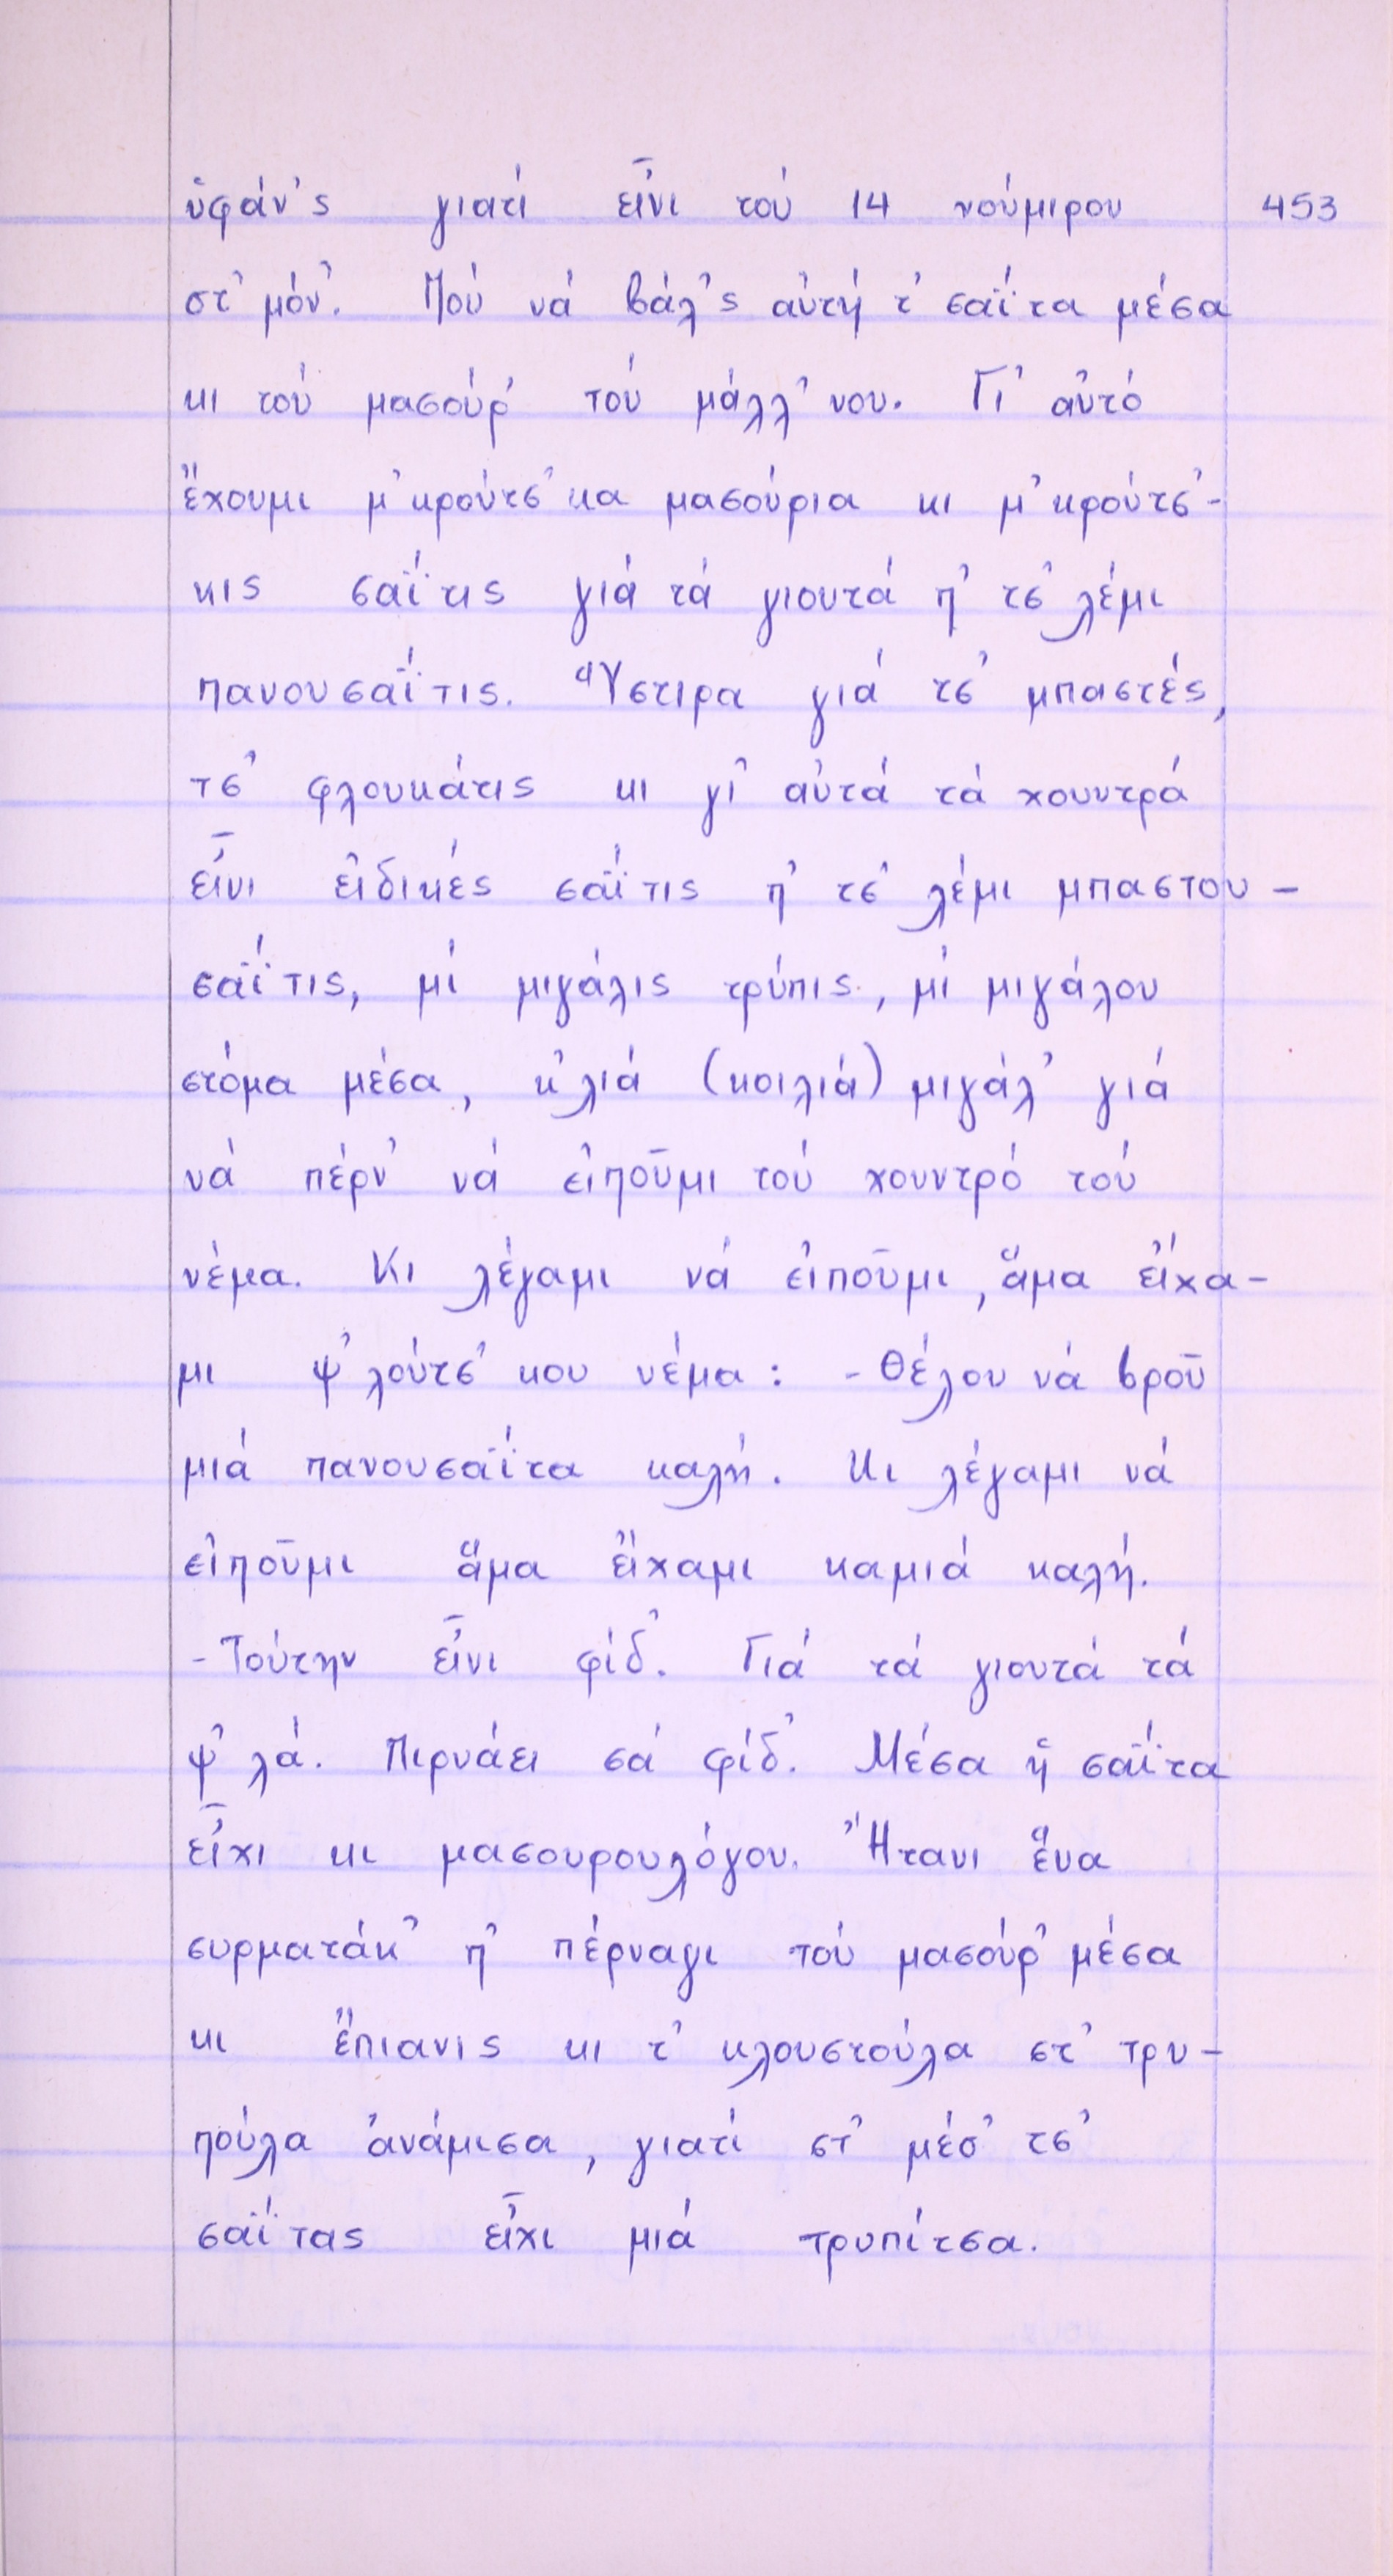 ὑφάν'ς γιατί εἶνι τού 14 νούμιρου 453
στ' μόν'. Πού νά βάλ'ς αὐτή τ' σαΐτα μέσα
κι τού μασούρ' τού μάλλ'νου. Γι' αὐτό
ἔχουμι μ'κρούτσ'κα μασούρια κι μ'κρούτσ'-
κις σαΐτις γιά τά γιουτά π' τσ' λέμι
πανουσαΐτις. Ὕστιρα γιά τσ' μπαστές,
τσ' φλουκάτις κι γι' αὐτά τά χουντρά
εἶνι εἰδικές σαΐτις π' τσ' λέμι μπαστου-
σαΐτις, μί μιγάλις τρύπις, μί μιγάλου
στόμα μέσα, κ'λιά (κοιλιά) μιγάλ' γιά
νά πέρν' νά εἰποῦμι τού χουντρό τού
νέμα. Κι λέγαμι νά εἰποῦμι, ἅμα εἴχα-
μι ψ'λούτσ'κου νέμα: - Θέλου νά βροῦ
μιά πανουσαΐτα καλή. Κι λέγαμι νά
εἰποῦμι ἅμα εἴχαμι καμιά καλή.
- Τούτην εἶνι φίδ'. Γιά τά γιουτά τά
ψ'λά. Πιρνάει σά φίδ'. Μέσα ἡ σαΐτα
εἶχι κι μασουρουλόγου. Ἤτανι ἕνα
συρματάκ' π' πέρναγι τού μασούρ' μέσα
κι ἔπιανις κι τ' κλουστούλα στ' τρυ-
πούλα ἀνάμισα, γιατί στ' μέσ' τσ'
σαΐτας εἶχι μιά τρυπίτσα.